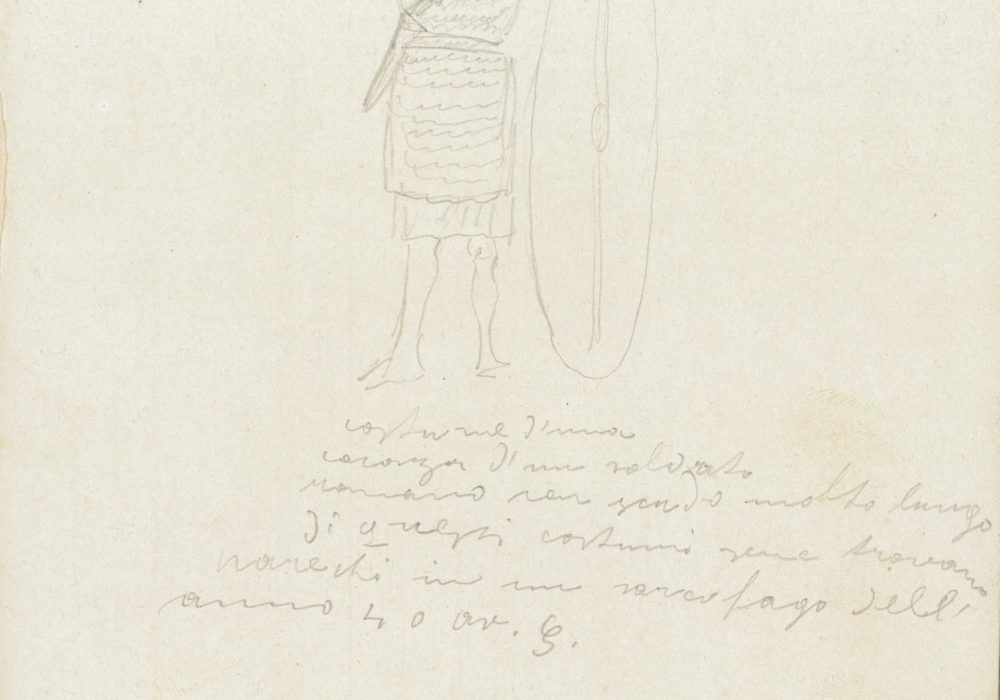 costume d'una
corazza d'un soldato
romano con scudo molto lungo
di questi costumi sene trovano
parechi in un sarcofago dell'
anno 40 av. C.